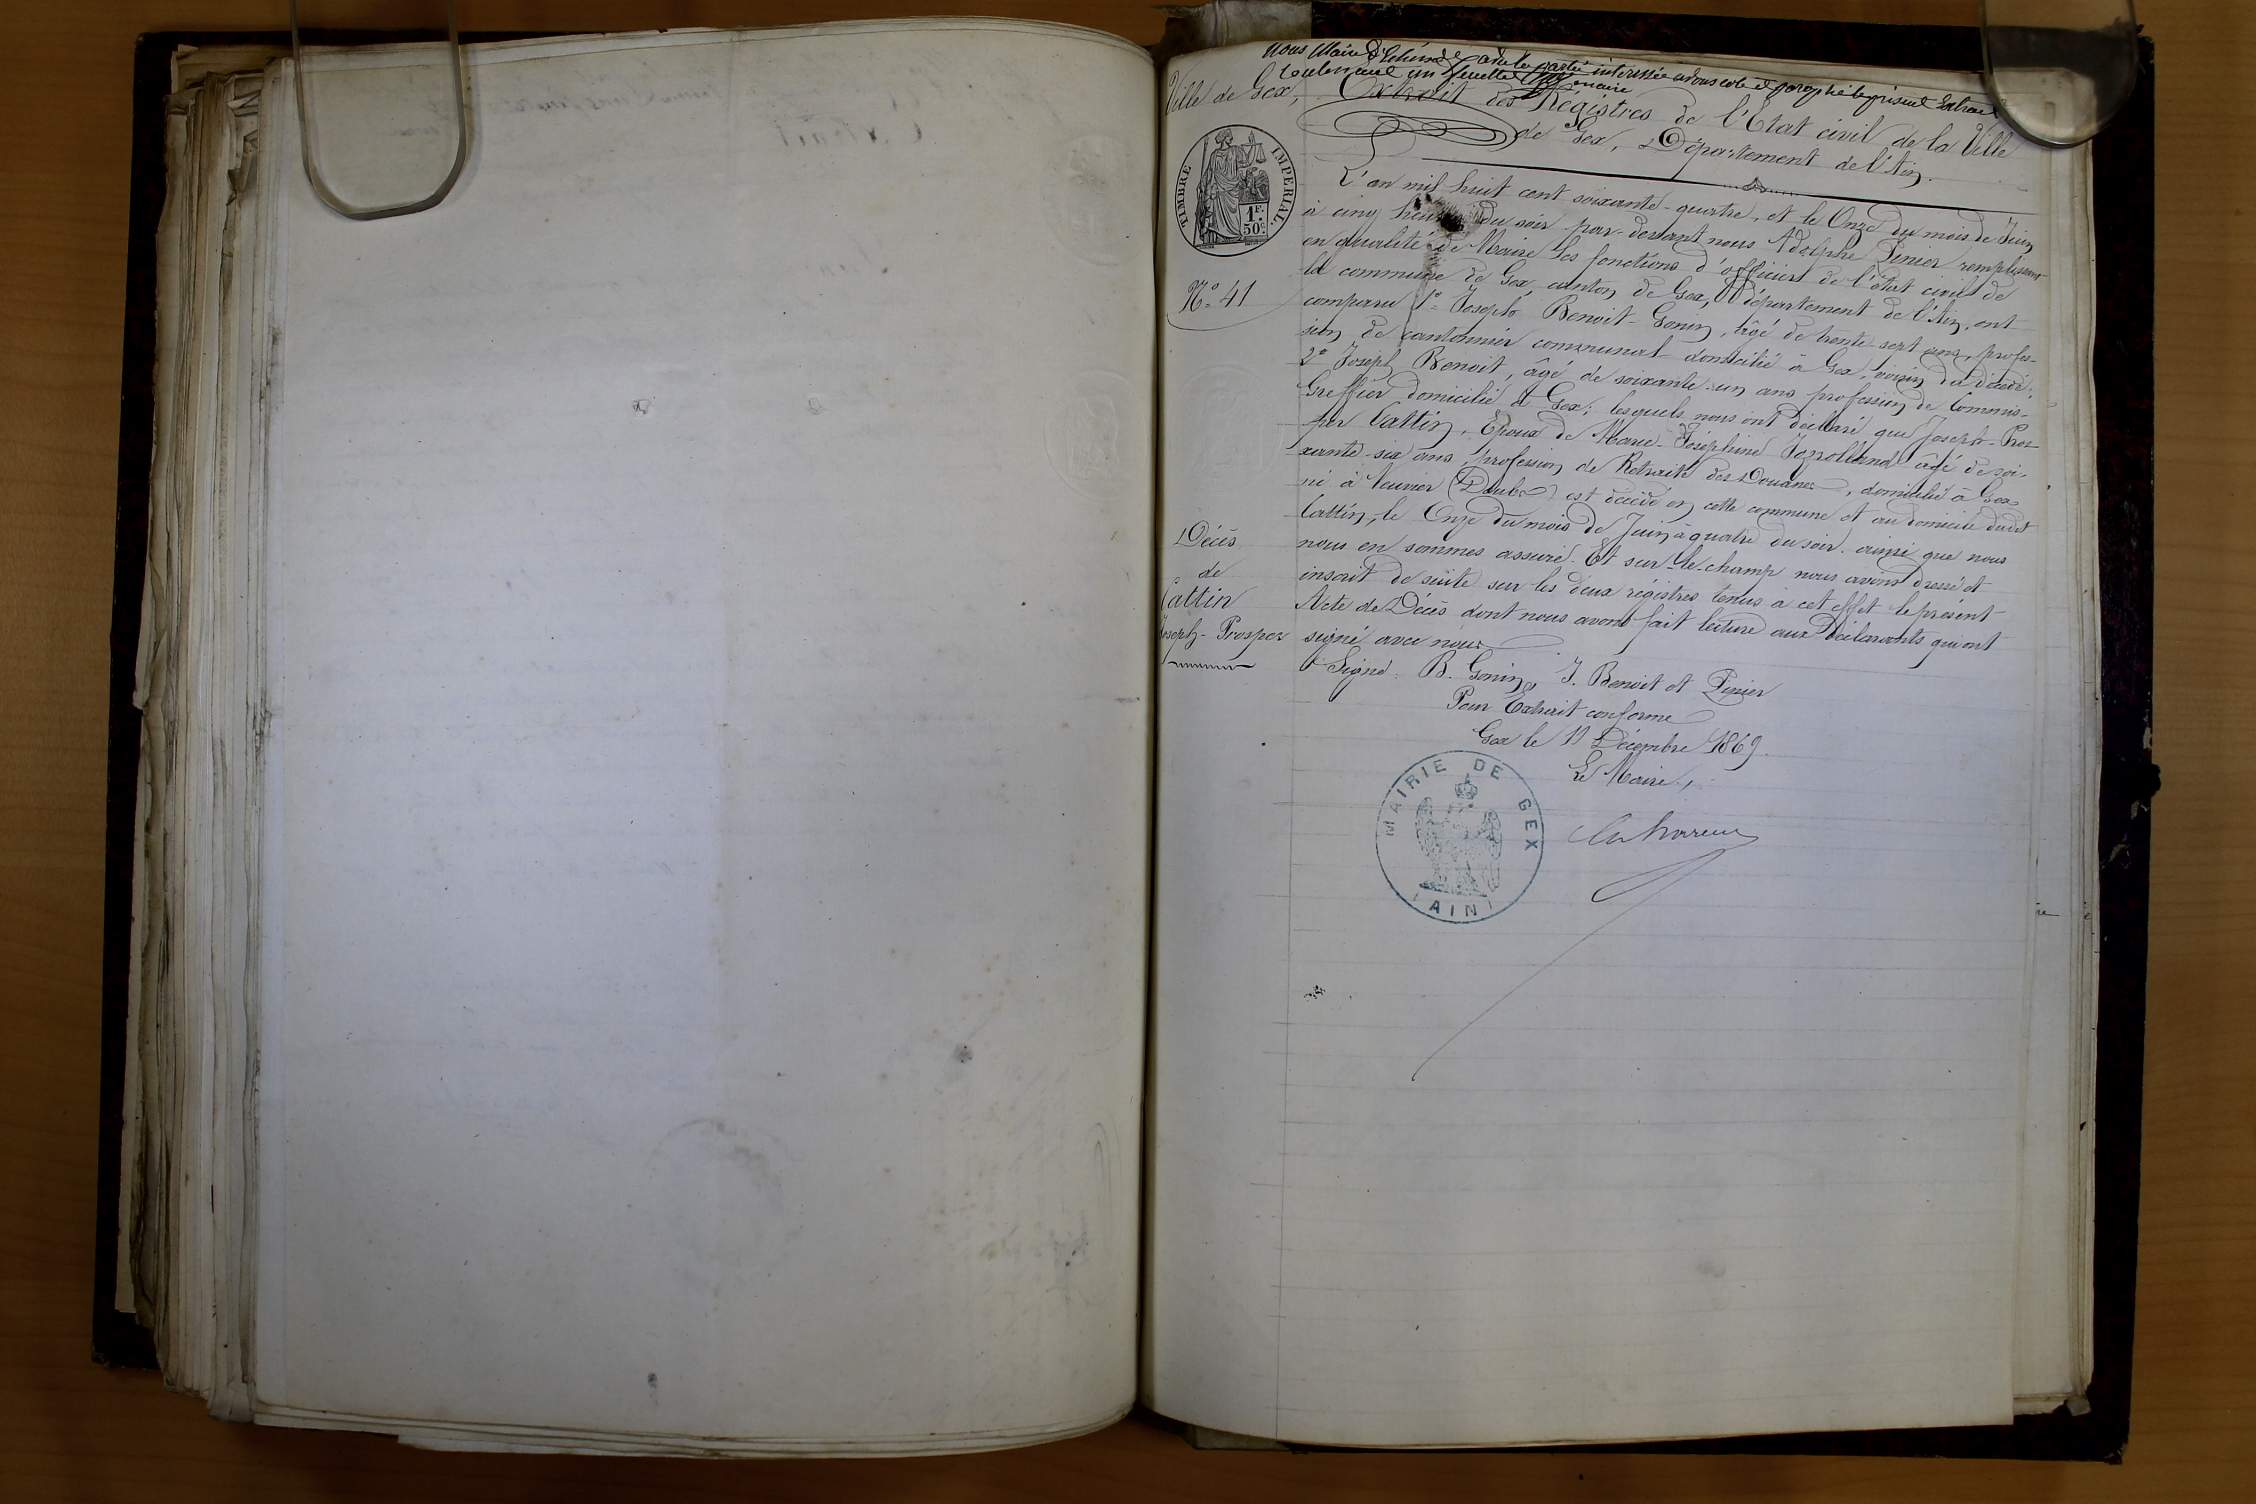 Nous Maire
contenant un feuillet
maire
Ville de Gex,
Extrait des Régistres de l'Etat civil de la Ville
de Gex, Département de l'Ain.
TIMBRE IMPERIAL
1F.
50c.
N° 41
L'an mil huit cent soixante-quatre, et le Onze du mois de Juin
à cinq heures du soir par-devant nous Adolphe Pinier remplissant
en qualité de Maire les fonctions d'officier de l'état civil de
la commune de Gex, canton de Gex, Département de l'Ain, ont
comparu 1° Joseph Benoit-Gonin, âgé de trente sept ans, profes-
sion de cantonnier communal domicilié à Gex, voisin du décédé;
2° Joseph Benoit, âgé de soixante-un ans profession de Commis-
Greffier domicilié à Gex; lesquels nous ont déclaré que Joseph-Pros-
per Cattin, Epoux de Marie-Joséphine âgé de soi-
xante-six ans, profession de Retraité des Douanes, domicilié à Gex
né à (Doubs) est décédé en cette commune et au domicile dudit
Cattin, le Onze du mois de Juin à quatre du soir. ainsi que nous
nous en sommes assuré. Et sur-le-champ nous avons dressé et
inscrit de suite sur les deux régistres tenus à cet effet le présent
Acte de Décès dont nous avons fait lecture aux Déclarants qui ont
signé avec nous
Décès
de
Cattin
Joseph-Prosper
Signé: B. Gonin, J. Benoit et Pinier
Pour Extrait conforme
Gex le 11 Décembre 1869.
Le Maire,
MAIRIE DE GEX
(AIN)